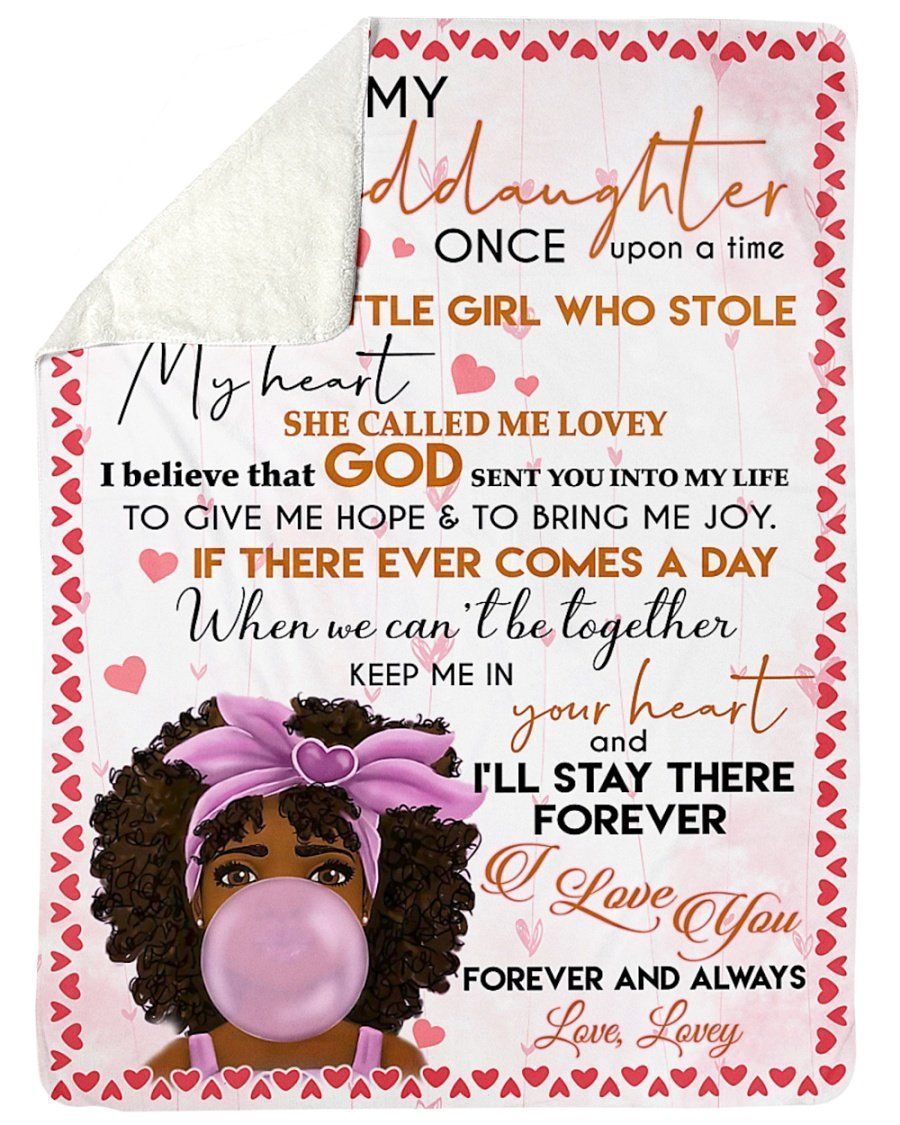 MY
ddaughter
ONCE upon a time
TTLE GIRL WHO STOLE
My heart
SHE CALLED ME LOVEY
I believe that GOD SENT YOU INTO MY LIFE
TO GIVE ME HOPE & TO BRING ME JOY.
IF THERE EVER COMES A DAY
When we can't be together
KEEP ME IN
your heart
and
I'LL STAY THERE
FOREVER
I Love You
FOREVER AND ALWAYS
Love, Lovey